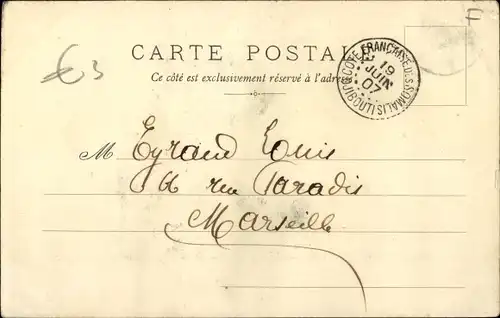 F
€3
CARTE POSTALE
Ce côté est exclusivement réservé à l'adresse
CÔTE FRANÇAISE DES SOMALIS
19
JUIN
07
DJIBOUTI
M Eyraud Louis
66 rue Paradis
Marseille